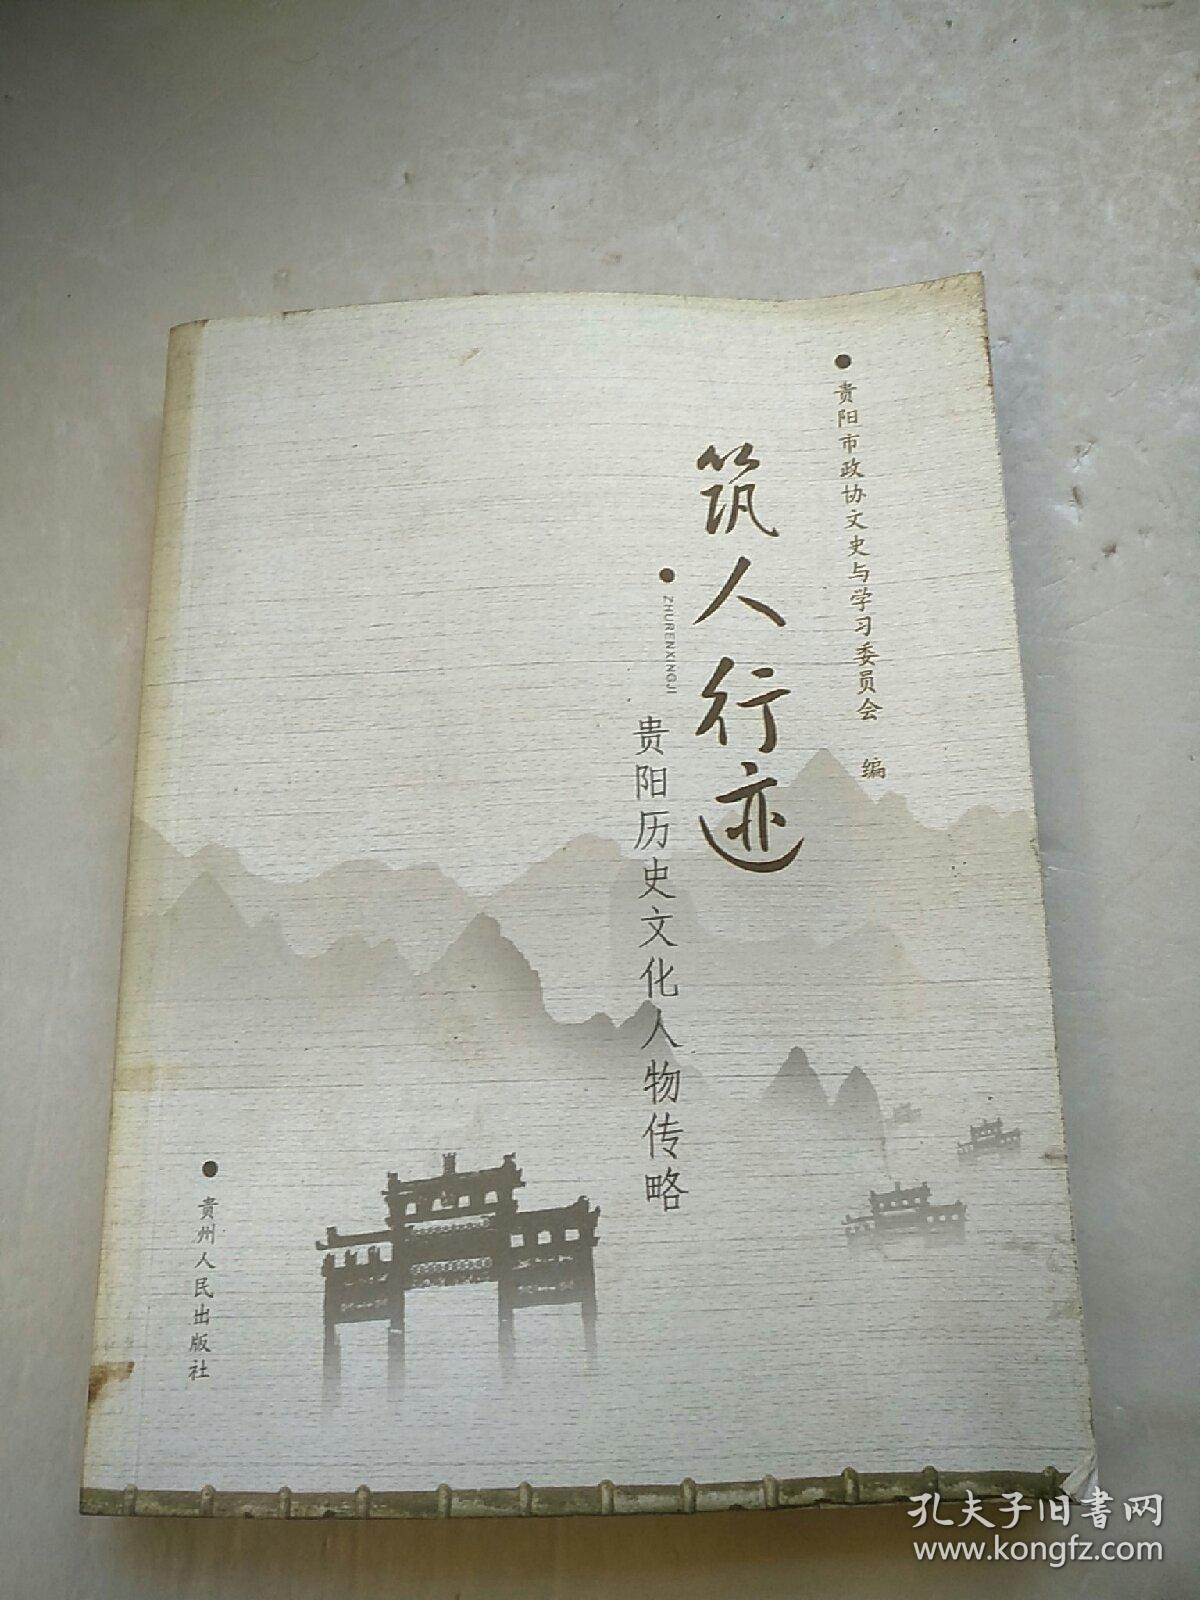 贵阳市政协文史与学习委员会 编
筑人行迹
ZHURENXINGJI
贵阳历史文化人物传略
贵州人民出版社
孔夫子旧書网
www.kongfz.com